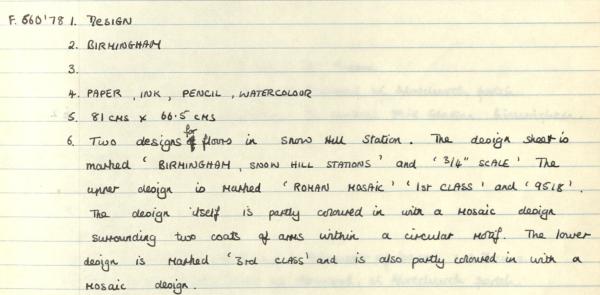 F. 660'78 1. DESIGN
2. BIRMINGHAM
3.
4. PAPER, INK, PENCIL, WATERCOLOUR
5. 81 CMS x 66.5 CMS
6. Two designs for floors in Snow Hill Station. The design sheet is
marked 'BIRMINGHAM, SNOW HILL STATIONS' and '3/4" SCALE' The
upper design is marked 'ROMAN MOSAIC' '1st CLASS' and '9518'.
The design itself is partly coloured in with a mosaic design
surrounding two coats of arms within a circular motif. The lower
design is marked '3rd CLASS' and is also partly coloured in with a
mosaic design.